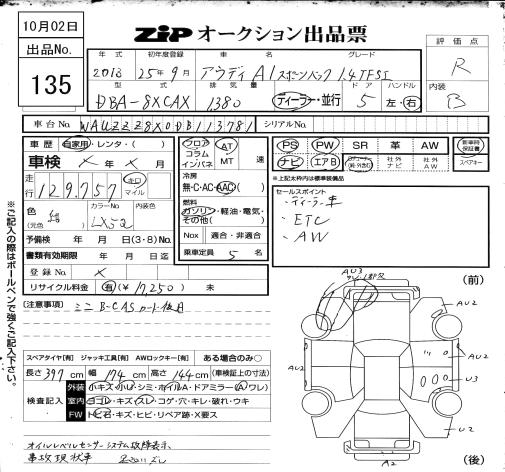 10月02日
出品No.
135
ZiP オークション出品票
年式 初年度登録 車名 グレード
2013 25年9月 アウディ A1 スポーツバック 1.4TFSI
型式 排気量 ドア ハンドル
DBA-8XCAX 1380 ディーラー・並行 5 左・右
評価点
R
内装
B
車台No. WAUZZZ8X0DB113781 シリアルNo.
車歴 自家用・レンタ・( )
車検 × 年 × 月
走行 129,757 キロ マイル
色 (元色) カラーNo. 内装色
紺 LX5Q
予備検 年 月 日(3・8)No.
書類有効期限 年 月 日迄
登録No. ×
リサイクル料金 有 ¥17,250 未
フロア コラム インパネ AT MT 速
冷房
無・C・AC・AAC
燃料
ガソリン・軽油・電気・その他( )
Nox 適合・非適合
乗車定員 5 名
PS PW SR 革 AW 新車時保証書
ナビ エアB 社外ナビ 社外AW スペアキー
※上記太わく内は標準装備品
セールスポイント
・ディーラー車
・ETC
・AW
[注意事項] ミニB-CASカード 使用
スペアタイヤ[有] ジャッキ工具[有] AWロックキー[有] ある場合のみ○
長さ397cm 幅174cm 高さ144cm (車検証上の寸法)
検査記入
外装 小キズ・小凹・シミ・ホイルA・ドアミラー(A)ワレ)
室内 ヨゴレ・キズ・スレ・コゲ・穴・キレ・破れ・ウキ
FW トビ石・キズ・ヒビ・リペア跡・X要ス
オイルレベルセンサーシステム故障表示
事故現状車
※ご記入の際はボールペンで強くご記入下さい。
(前)
(後)
AU3
AU2
AU2
AU2
U3
U2
A2